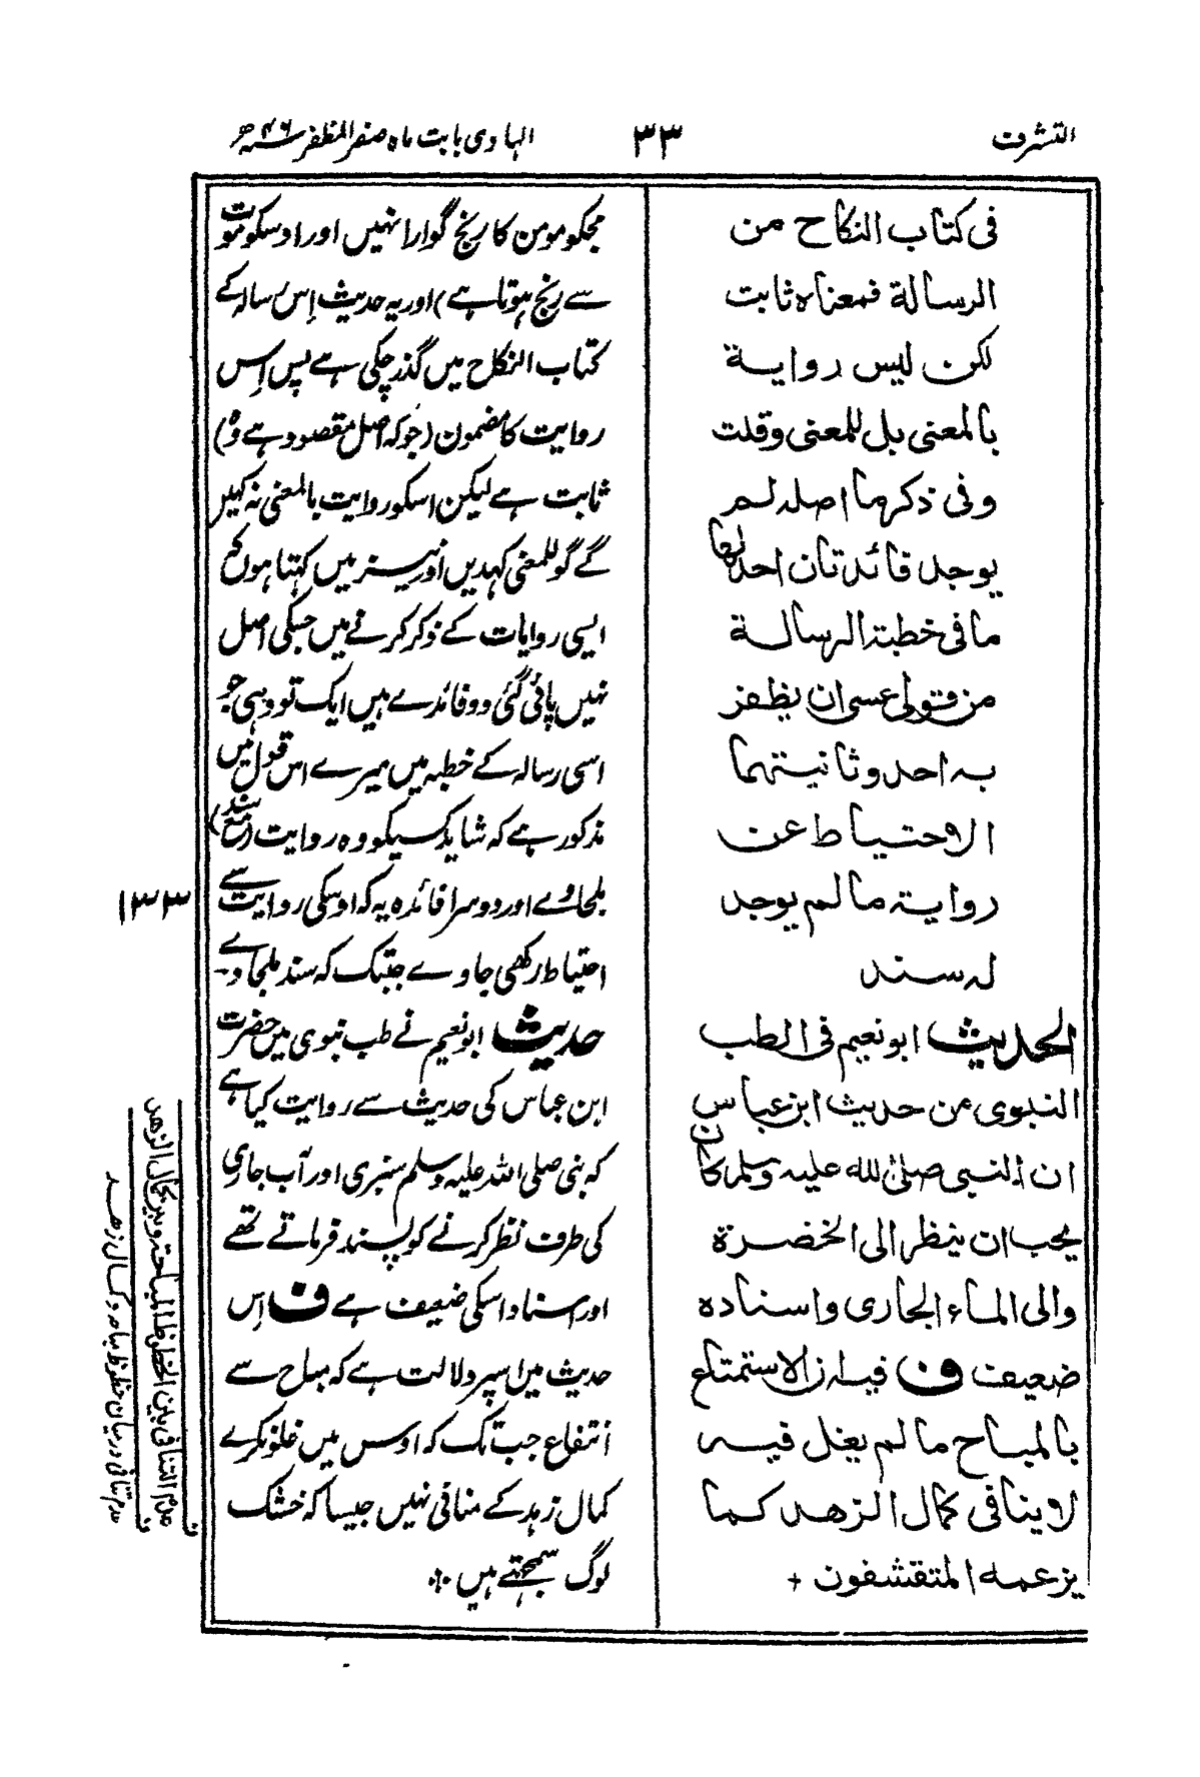 التشرف
٣٣
الہادی بابت ماہ صفر المظفر سنہ ۴۶ھ
فی کتاب النکاح من
الرسالة فمعناہ ثابت
لکن لیس روایة
بالمعنی بل للمعنی وقلت
وفی ذکرما اصلہ لم
یوجد فائدتان احدٰهما
ما فی خطبة الرسالة
من قولی عسی ان یظفر
بہ احد وثانیتہما
الاحتیاط عن
روایۃ مالم یوجد
لہ سند
الحدیث ابو نعیم فی الطب
النبوی من حدیث ابن عباس
ان النبی صلی اللہ علیہ وسلم کان
یحب ان ینظر الی الخضرة
والی الماء الجاری واسنادہ
ضعیف ف فیہ ان الاستمتاع
بالمباح مالم یغل فیہ
لا ینافی کمال الزهد کما
یزعمہ المتقشفون +
مجکو مومن کا رنج گوارا نہیں اور اوسکو موت
سے رنج ہوتا ہے) اور یہ حدیث اِس رسالہ کے
کتاب النکاح میں گذر چکی ہے پس اِس
روایت کا مضمون (جو کہ اصل مقصود ہے وہ)
ثابت ہے لیکن اسکو روایت بالمعنی نہ کہیں
گے گو للمعنی کہدیں اور نیز میں کہتا ہوں کہ
ایسی روایات کے ذکر کرنے میں جسکی اصل
نہیں پائی گئی دو فائدے ہیں ایک تو وہی جو
اسی رسالہ کے خطبہ میں میرے اس قول میں
مذکور ہے کہ شاید کسیکو وہ روایت (مع سند)
ملجاوے اور دوسرا فائدہ یہ کہ اوسکی روایت سے
احتیاط رکھی جاوے جبتک کہ سند ملجاوے۔
حدیث ابو نعیم نے طب نبوی میں حضرت
ابن عباس کی حدیث سے روایت کیا ہے
کہ نبی صلی اللہ علیہ وسلم سبزی اور آب جاری
کی طرف نظر کرنے کو پسند فرماتے تھے
اور اسناد اسکی ضعیف ہے ف اِس
حدیث میں اسپر دلالت ہے کہ مباح سے
انتفاع جب تک کہ اوس میں غلو نکرے
کمال زہد کے منافی نہیں جیسا کہ خشک
لوگ سمجھتے ہیں ۔
١٣٣
ف عدم التنافی بین الحظوظ المباحة وبین کمال الزهد
ف عدم تنافی درمیان حظوظ مباحہ وکمال زہد